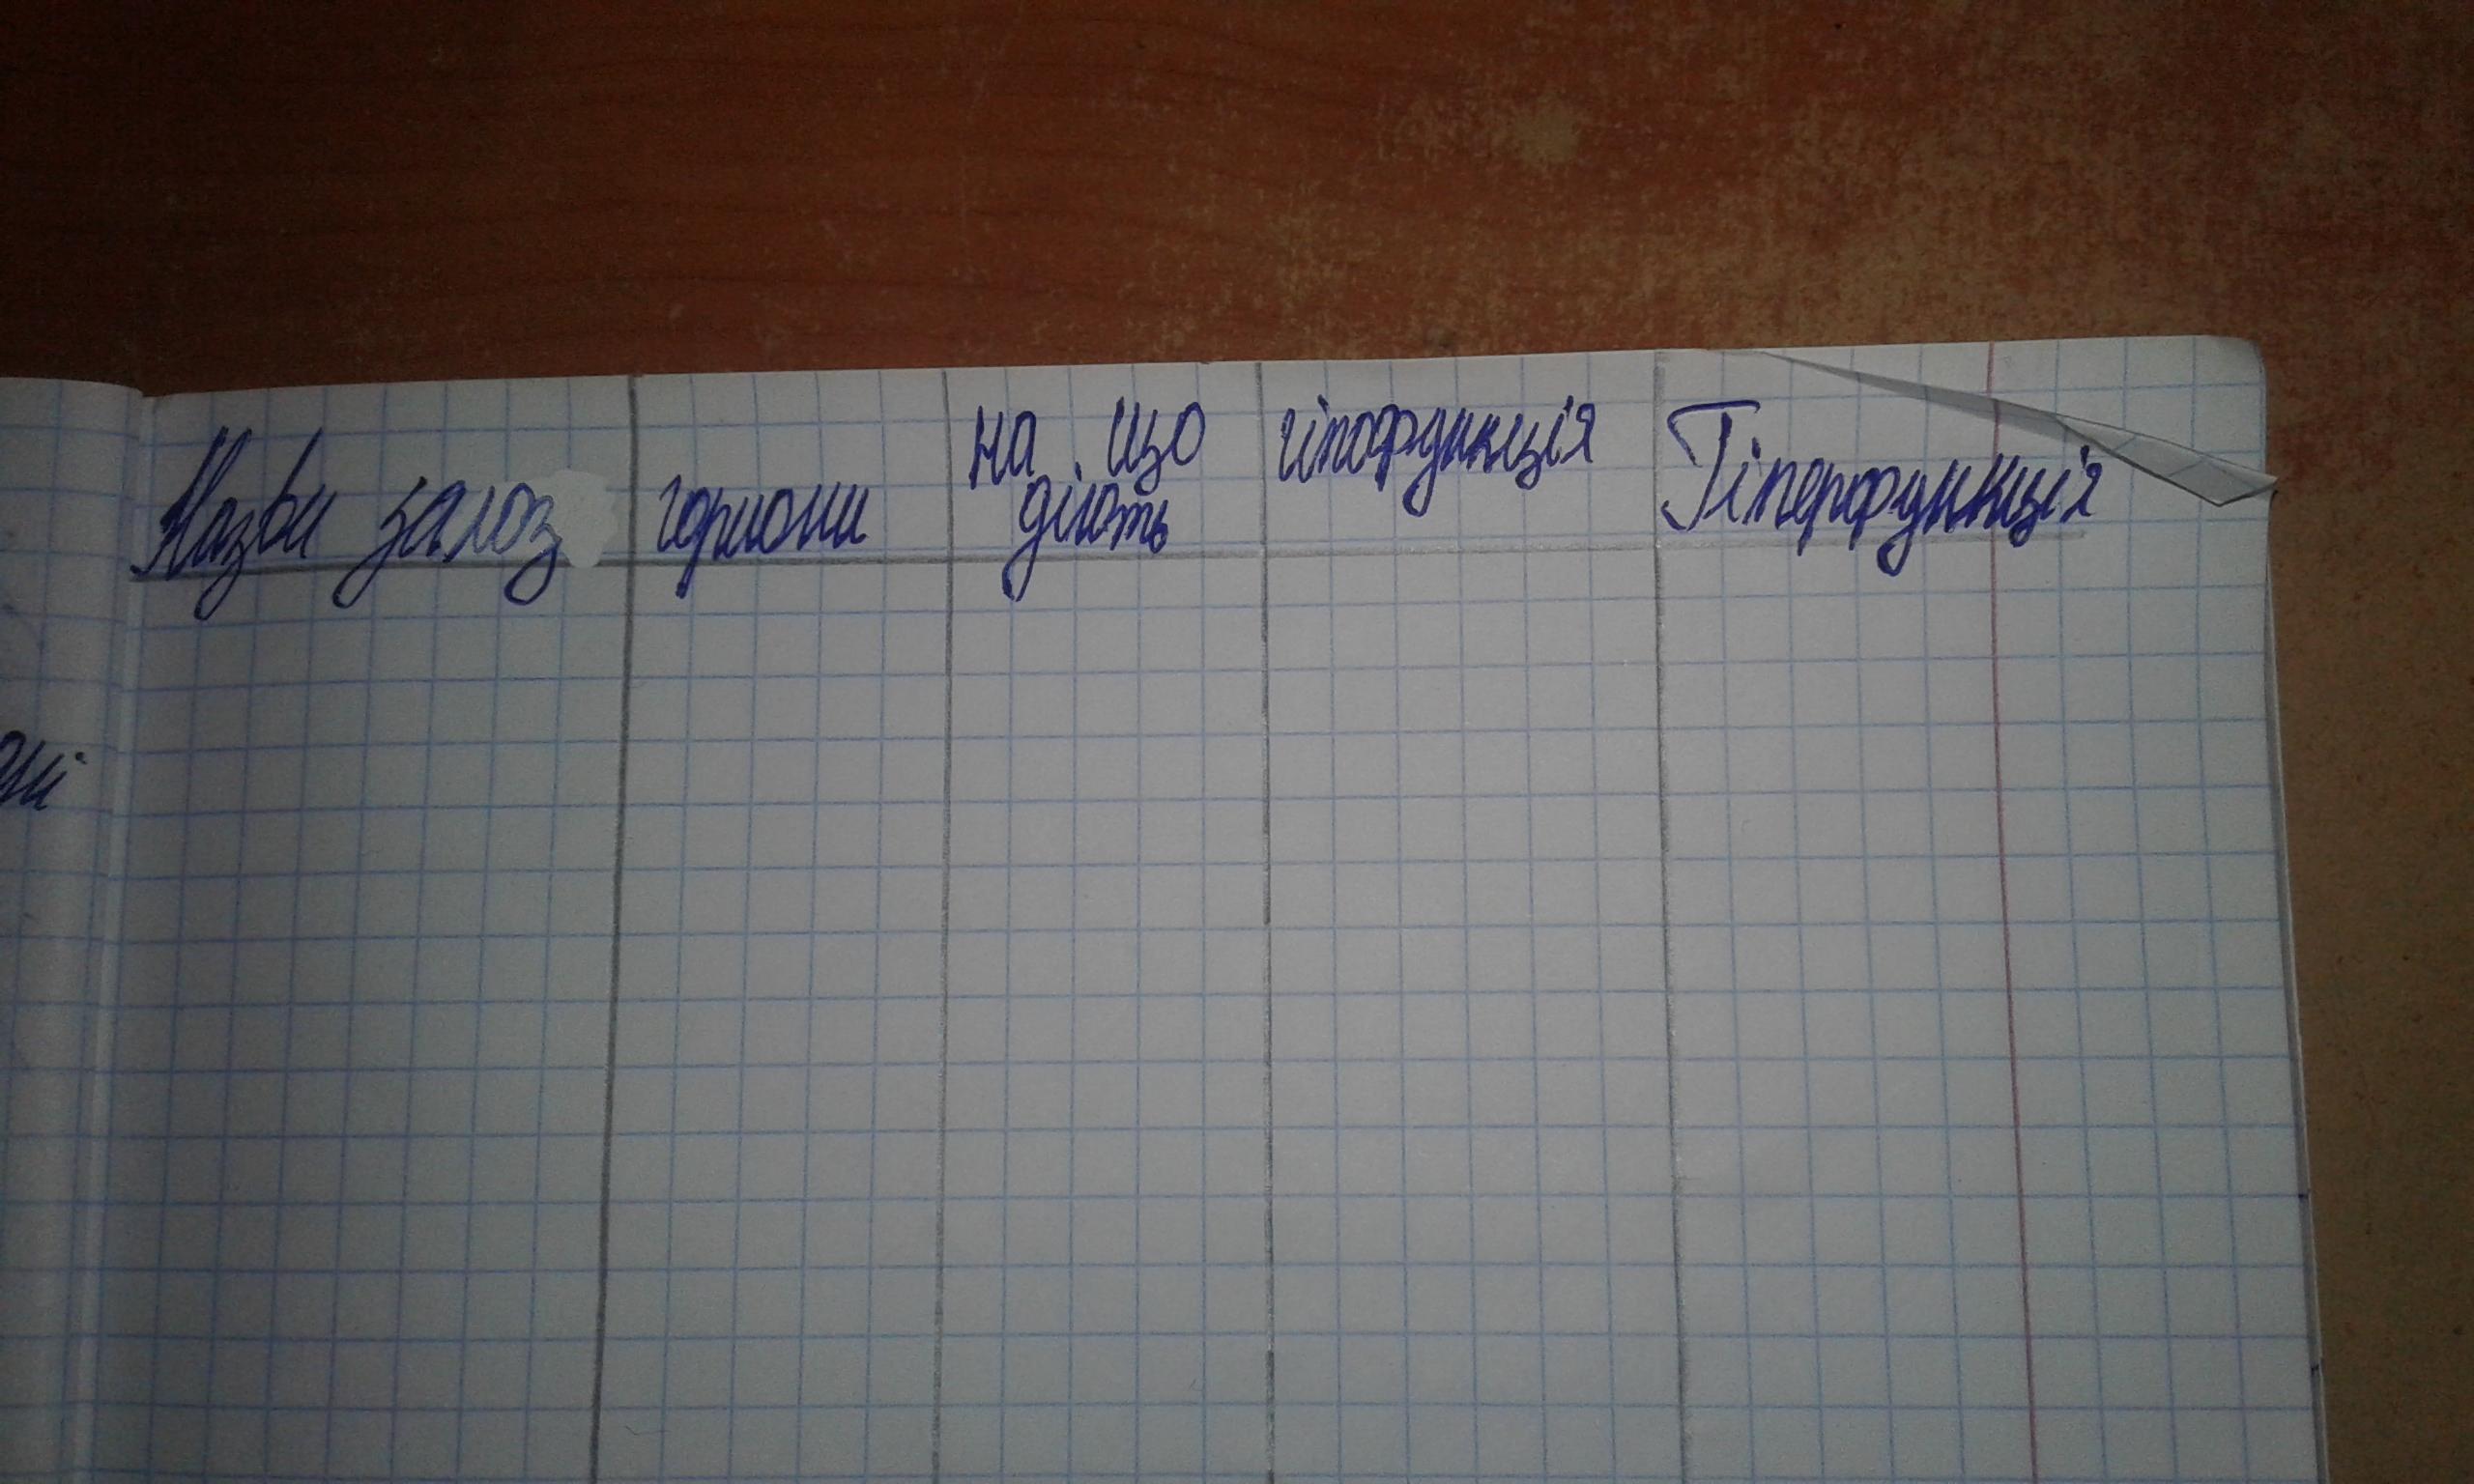 Назви залоз
гормони
на що
діють
гіпофункція
Гіперфункція